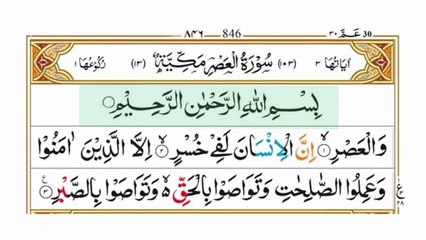 ٨٤٦ 846 عَمَّ ٣٠ 30
اٰيَاتُهَا ٣ (١٠٣) سُوْرَةُ الْعَصْرِ مَكِّيَّةٌ (١٣) رُكُوْعُهَا ١
بِسْمِ اللّٰهِ الرَّحْمٰنِ الرَّحِيْمِ
وَالْعَصْرِ ۝١ اِنَّ الْاِنْسَانَ لَفِيْ خُسْرٍ ۝٢ اِلَّا الَّذِيْنَ اٰمَنُوْا
وَعَمِلُوا الصّٰلِحٰتِ وَتَوَاصَوْا بِالْحَقِّ ۙ۬ وَتَوَاصَوْا بِالصَّبْرِ ۝٣